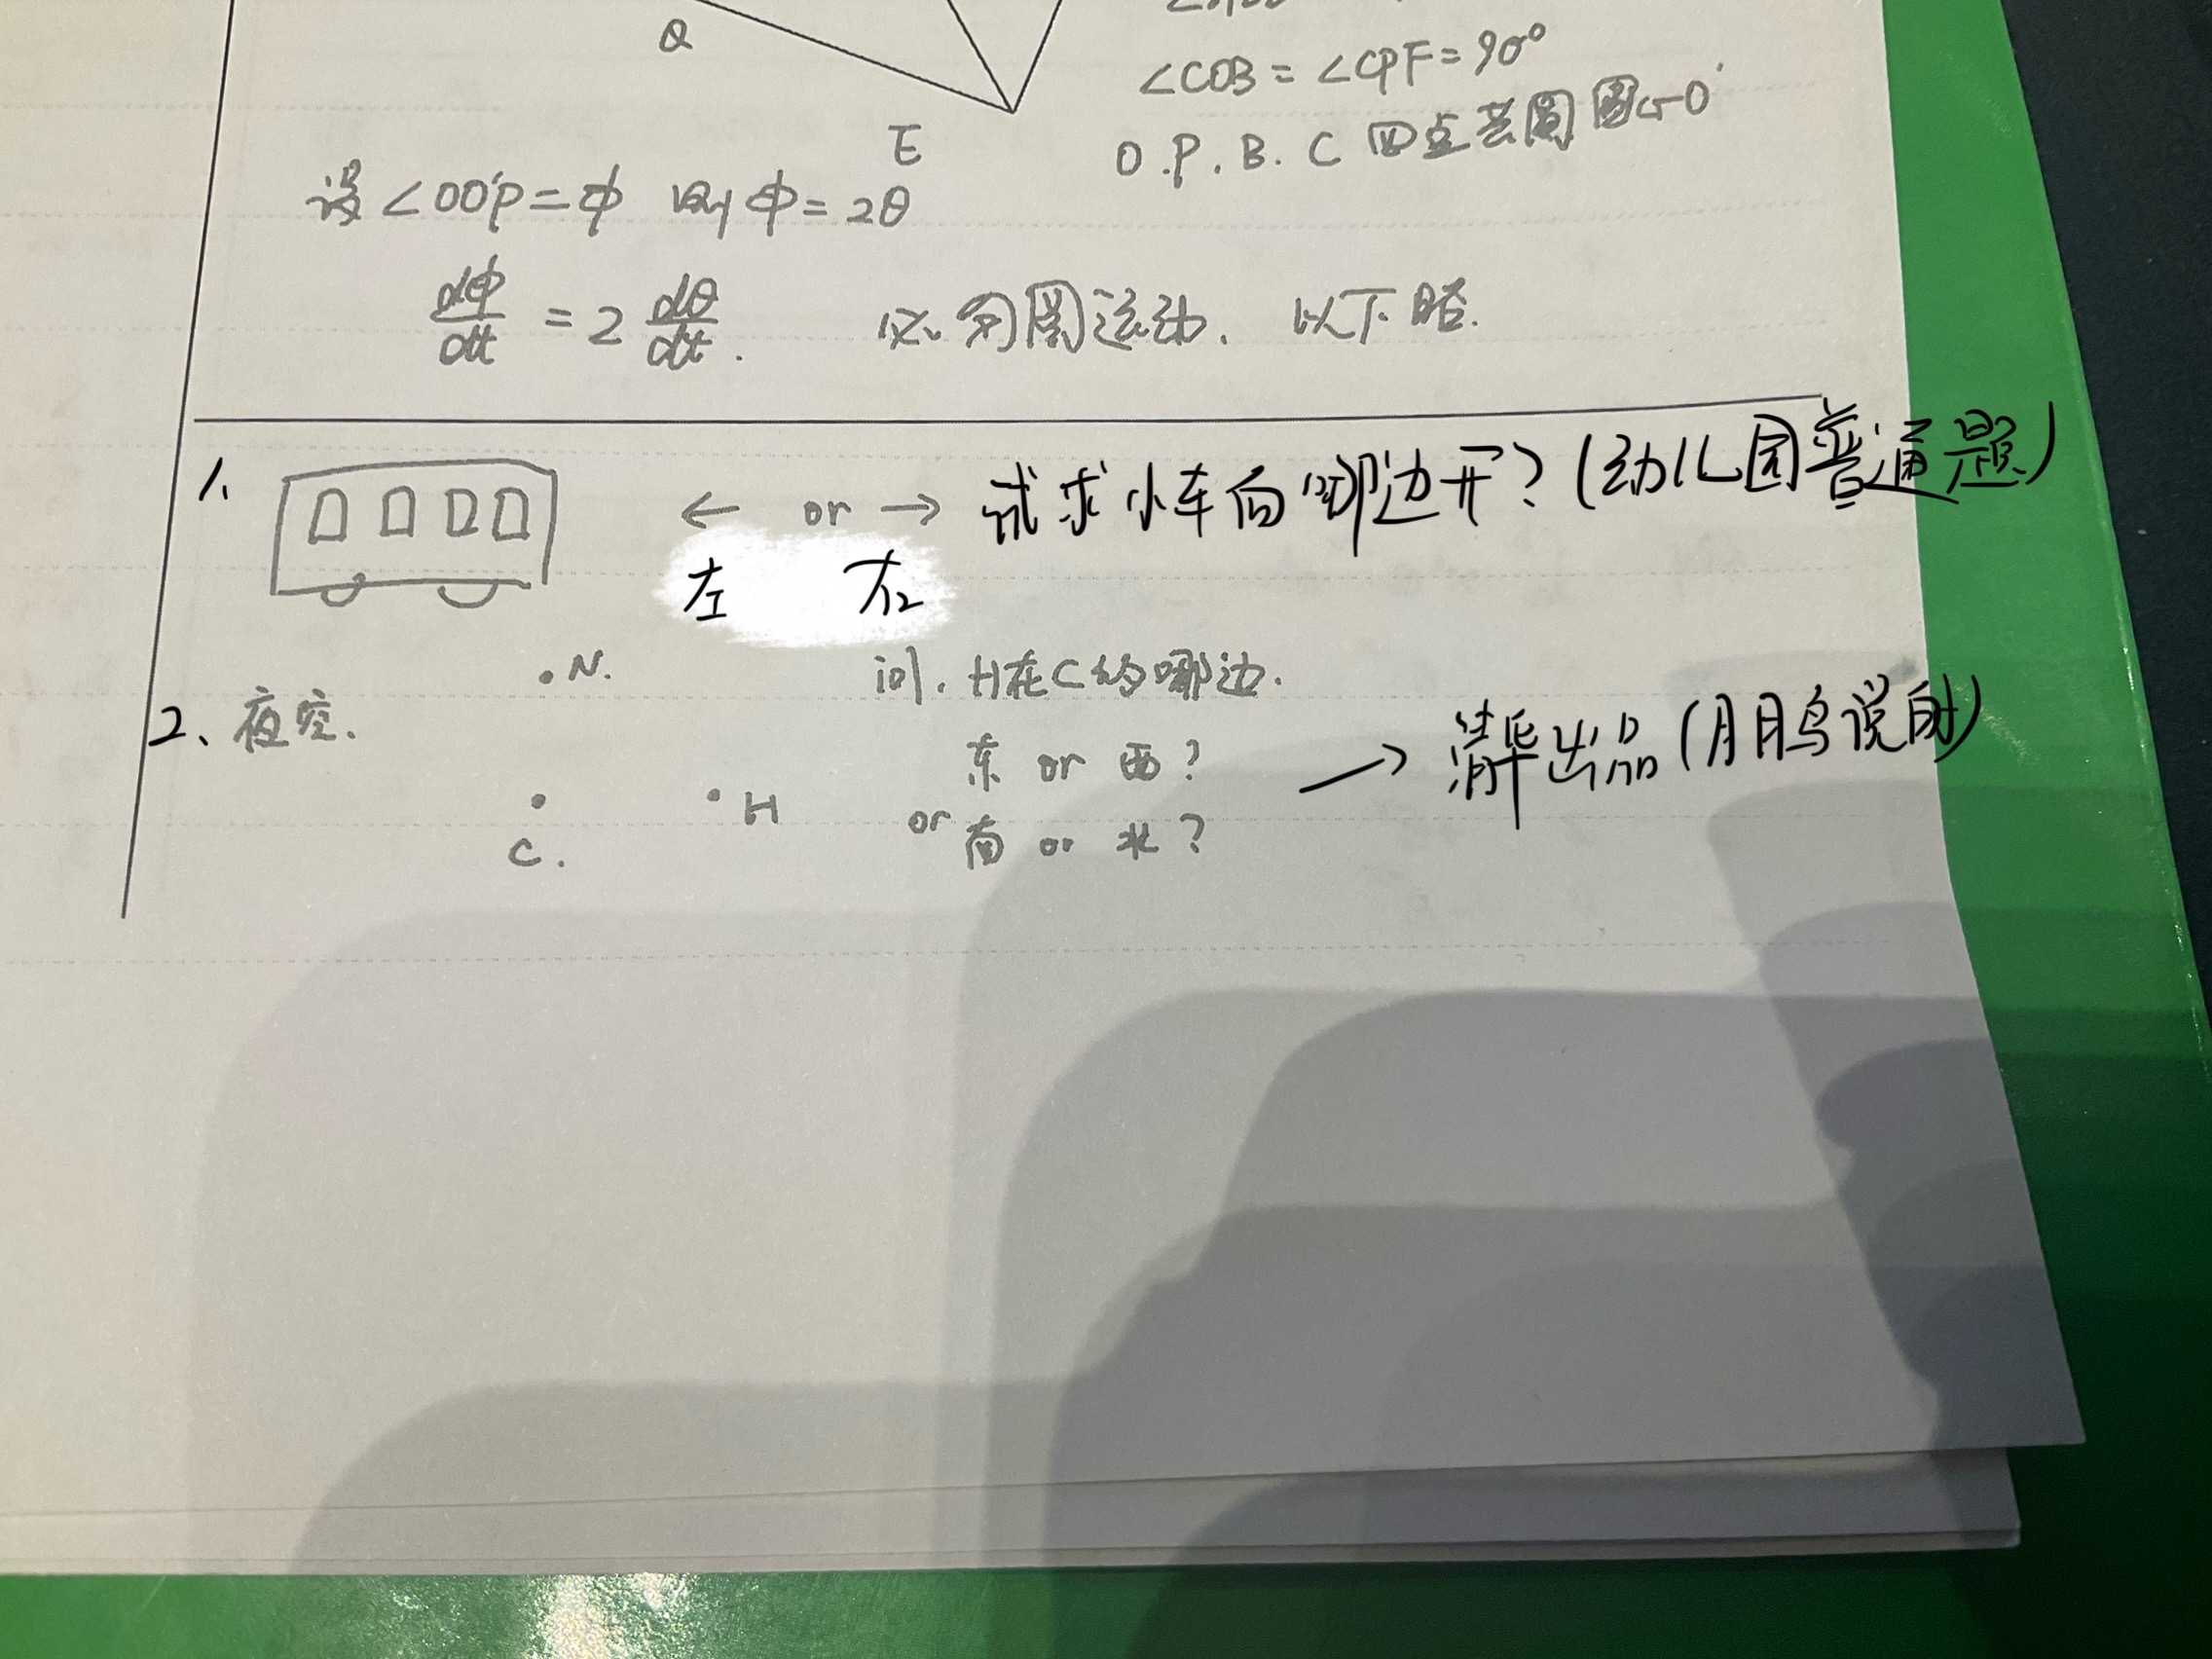 Q
∠COB = ∠CPF = 90°
E
O.P.B.C 四点共圆 圆心O'
设∠OO'P=φ 则φ=2θ
dφ/dt = 2 dθ/dt. 必匀圆运动. 以下略.
1. ← or → 试求小车向哪边开?(幼儿园普通题)
左 右
.N. 问.H在C的哪边.
2、夜空.
东 or 西? → 清华出品(月月鸟说的)
.H
C. or 南 or 北?